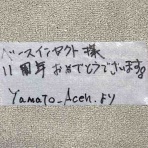 ベースインヤクト 様
11周年 おめでとうございます
Yamato_Aceh.fy